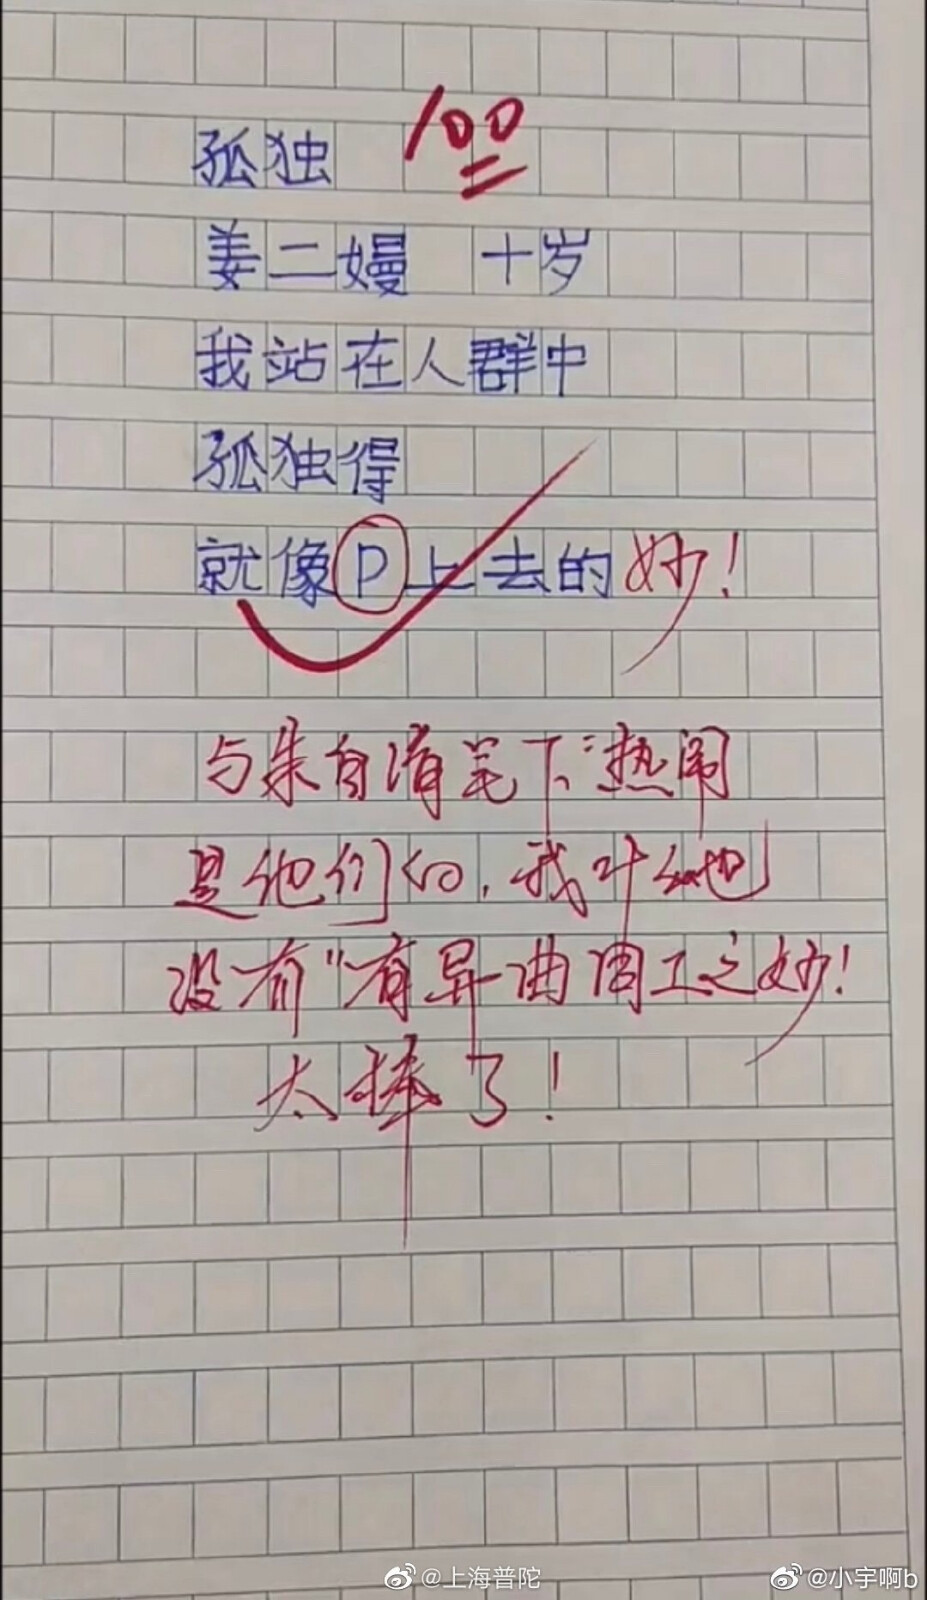 孤独 100
姜二嫚 十岁
我站在人群中
孤独得
就像P上去的 妙!
与朱自清笔下“热闹
是他们的,我什么也
没有”有异曲同工之妙!
太棒了!
@上海普陀
@小宇啊b